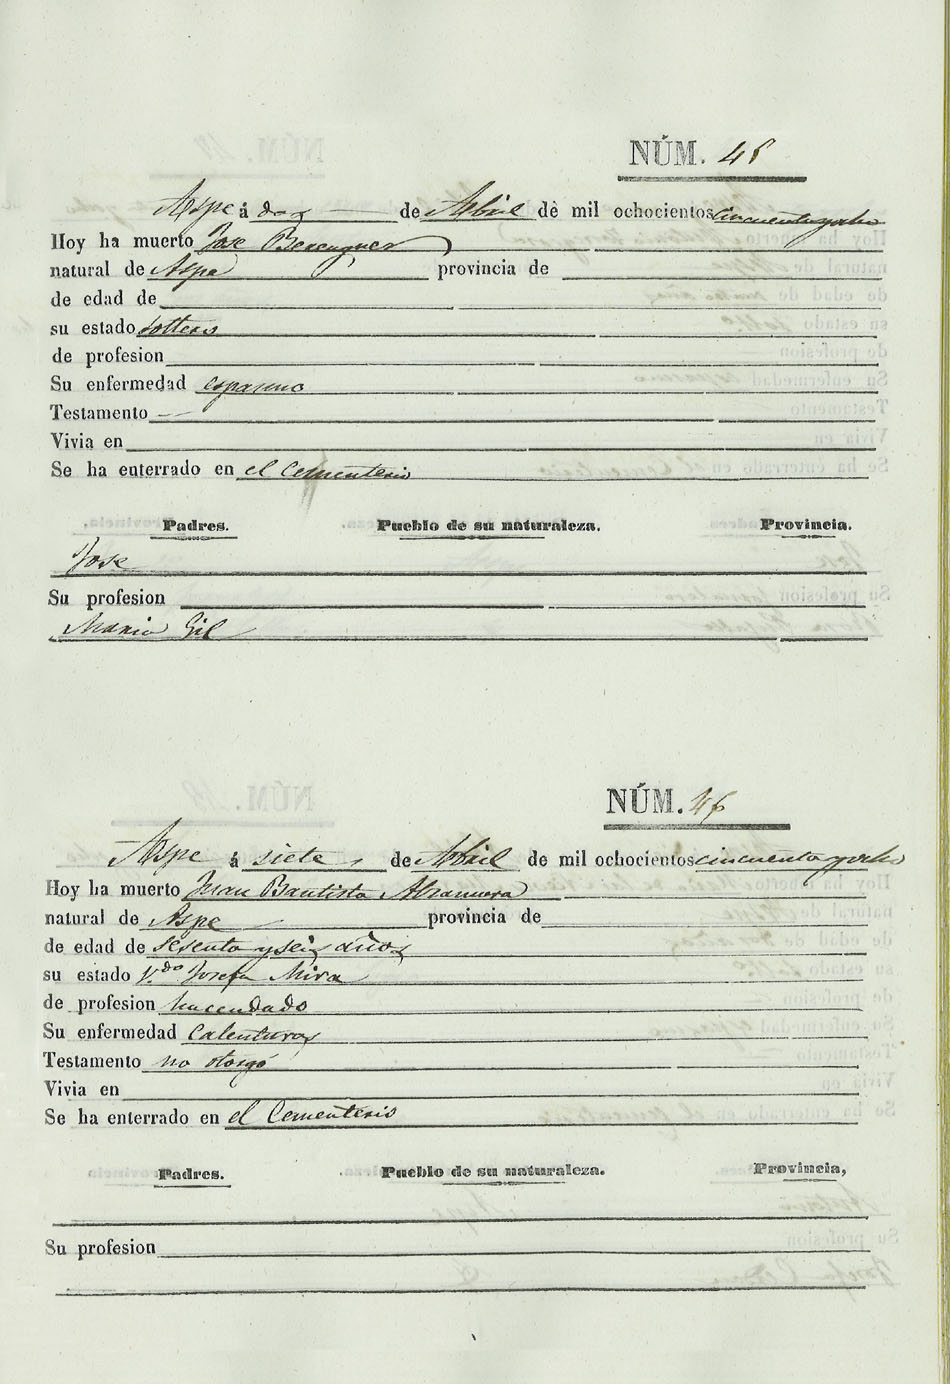 NÚM. 45
Aspe á dos de Abril dè mil ochocientos cincuenta y ocho
Hoy ha muerto Jose Berenguer
natural de Aspe provincia de
de edad de
su estado soltero
de profesion
Su enfermedad espasmo
Testamento —
Vivia en
Se ha enterrado en el Cementerio
Padres. Pueblo de su naturaleza. Provincia.
Jose
Su profesion
Maria Gil
NÚM. 46
Aspe á siete de Abril de mil ochocientos cincuenta y ocho
Hoy ha muerto Juan Bautista
natural de Aspe provincia de
de edad de sesenta y seis años
su estado V.do Josefa Mira
de profesion hacendado
Su enfermedad calenturas
Testamento no otorgó
Vivia en
Se ha enterrado en el Cementerio
Padres. Pueblo de su naturaleza. Provincia,
Su profesion